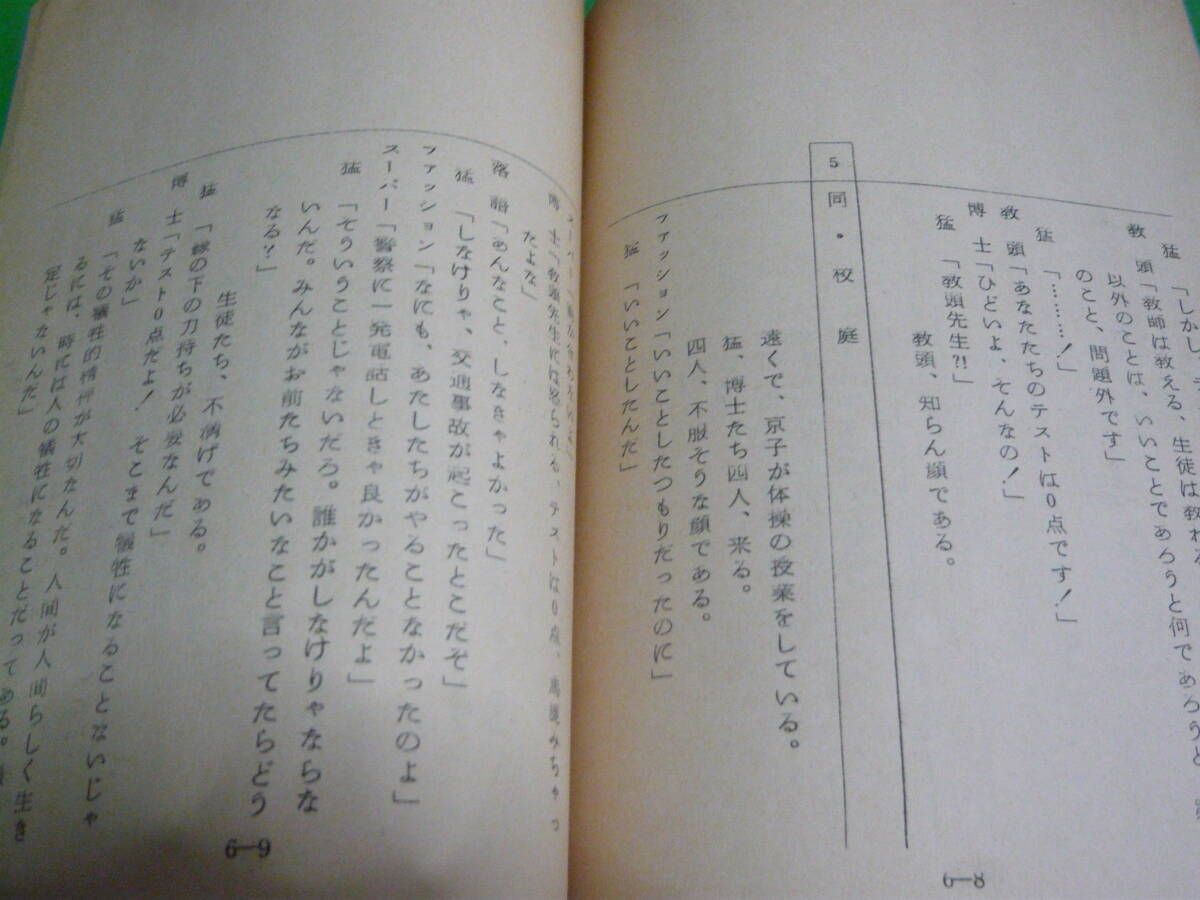 猛「しかし
教頭「教師は教える、生徒は教わる
以外のことは、いいことであろうと何であろうと
のこと、問題外です」
猛「………！」
教頭「あなたたちのテストは0点です！」
博士「ひどいよ、そんなの！」
猛「教頭先生?!」
教頭、知らん顔である。
5 同・校庭
遠くで、京子が体操の授業をしている。
猛、博士たち四人、来る。
四人、不服そうな顔である。
ファッション「いいことしたつもりだったのに」
猛「いいことしたんだ」
6—8
博士「教頭先生には怒られる、テストは0点、
たよな」
落語「あんなこと、しなきゃよかった」
猛「しなけりゃ、交通事故が起こったとこだぞ」
ファッション「なにも、あたしたちがやることなかったのよ」
スーパー「警察に一発電話しときゃ良かったんだよ」
猛「そういうことじゃないだろ。誰かがしなけりゃならな
いんだ。みんながお前たちみたいなこと言ってたらどう
なる？」
生徒たち、不満げである。
猛「縁の下の力持ちが必要なんだ」
博士「テスト0点だよ！　そこまで犠牲になることないじゃ
ないか」
猛「その犠牲的精神が大切なんだ。人間が人間らしく生き
るには、時には人の犠牲になることだってある。
定じゃないんだ」
6—9